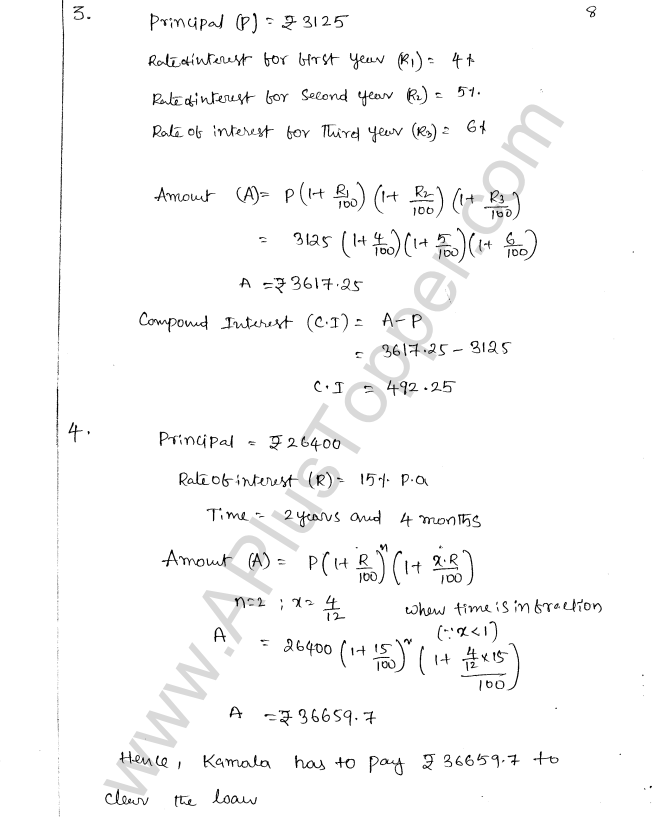 3. Principal (P) = ₹3125 8
Rate of interest for first year (R1) = 4%
Rate of interest for Second year (R2) = 5%.
Rate of interest for Third year (R3) = 6%
Amount (A) = P(1+ R1/100) (1+ R2/100) (1+ R3/100)
= 3125 (1+ 4/100)(1+ 5/100)(1+ 6/100)
A = ₹3617.25
Compound Interest (C.I) = A-P
= 3617.25 - 3125
C.I = 492.25
4. Principal = ₹26400
Rate of interest (R) = 15% P.a
Time = 2 years and 4 months
Amount (A) = P(1+ R/100)^n (1+ x.R/100)
n=2 ; x= 4/12 when time is in fraction
(∵x<1)
A = 26400 (1+ 15/100)^2 (1+ 4/12 × 15/100)
A = ₹36659.7
Hence, Kamala has to pay ₹36659.7 to
clear the loan
www.APlusTopper.com